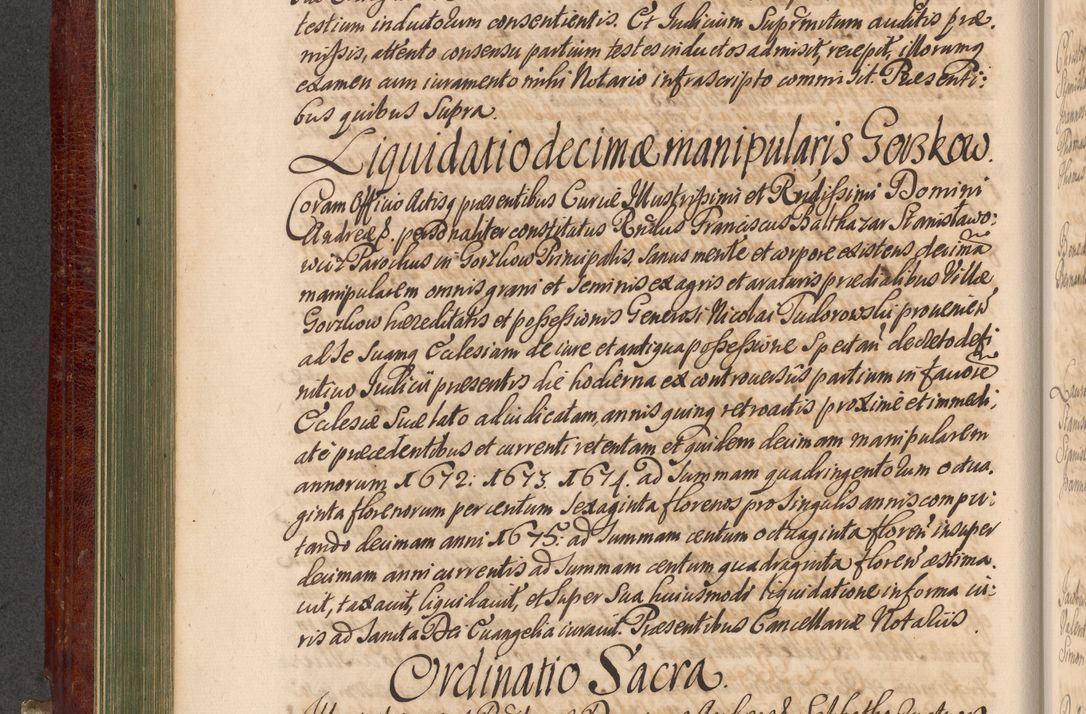 testium inductorum consentientis. Et Iudicium Supremum auditis præ
missis, attento consensu partium testes inductos admisit, recepit, illorumq
examen cum iuramento mihi Notario infrascripto commisit. Præsenti:
bus quibus Supra.
Liquidatio decimæ manipularis Gorzkow.
Coram Officio Actisq præsentibus Curiæ Illustrissimi et Rndissimi Domini
Andreæ &. personaliter constitutus Rndus Franciscus Balthazar Stanisławo:
wicz Parochus in Gorzkow Principalis, sanus mente et corpore existens decimã
manipularem omnis grani et seminis ex agris et araturis prædialibus Villæ
Gorzkow hæreditatis et possessionis Generosi Nicolai Sudorowski provenien
ad se suamq Ecclesiam de iure et antiqua possessione spectan decreto defi
nitivo Iudicii præsentis die hodierna ex controversiis partium in favorẽ
Ecclesiæ suæ lato adiudicatam, annis quinq retroactis proximè et immedi:
atè præcedentibus et currenti retentam et quidem decimam manipularem
annorum 1672: 1673. 1674. ad summam quadringentorum octua.
ginta florenorum per centum sexaginta florenos pro singulis annis compu:
tando decimam anni 1675. ad summam centum octuaginta floren insuper
decimam anni currentis ad summam centum quadraginta floren æstima.
vit, taxavit, liquidavit, et super sua huiusmodi liquidatione in forma iu:
ris ad Sancta Dei Evangelia iuravit. Præsentibus Cancellariæ Notariis.
Ordinatio Sacra.